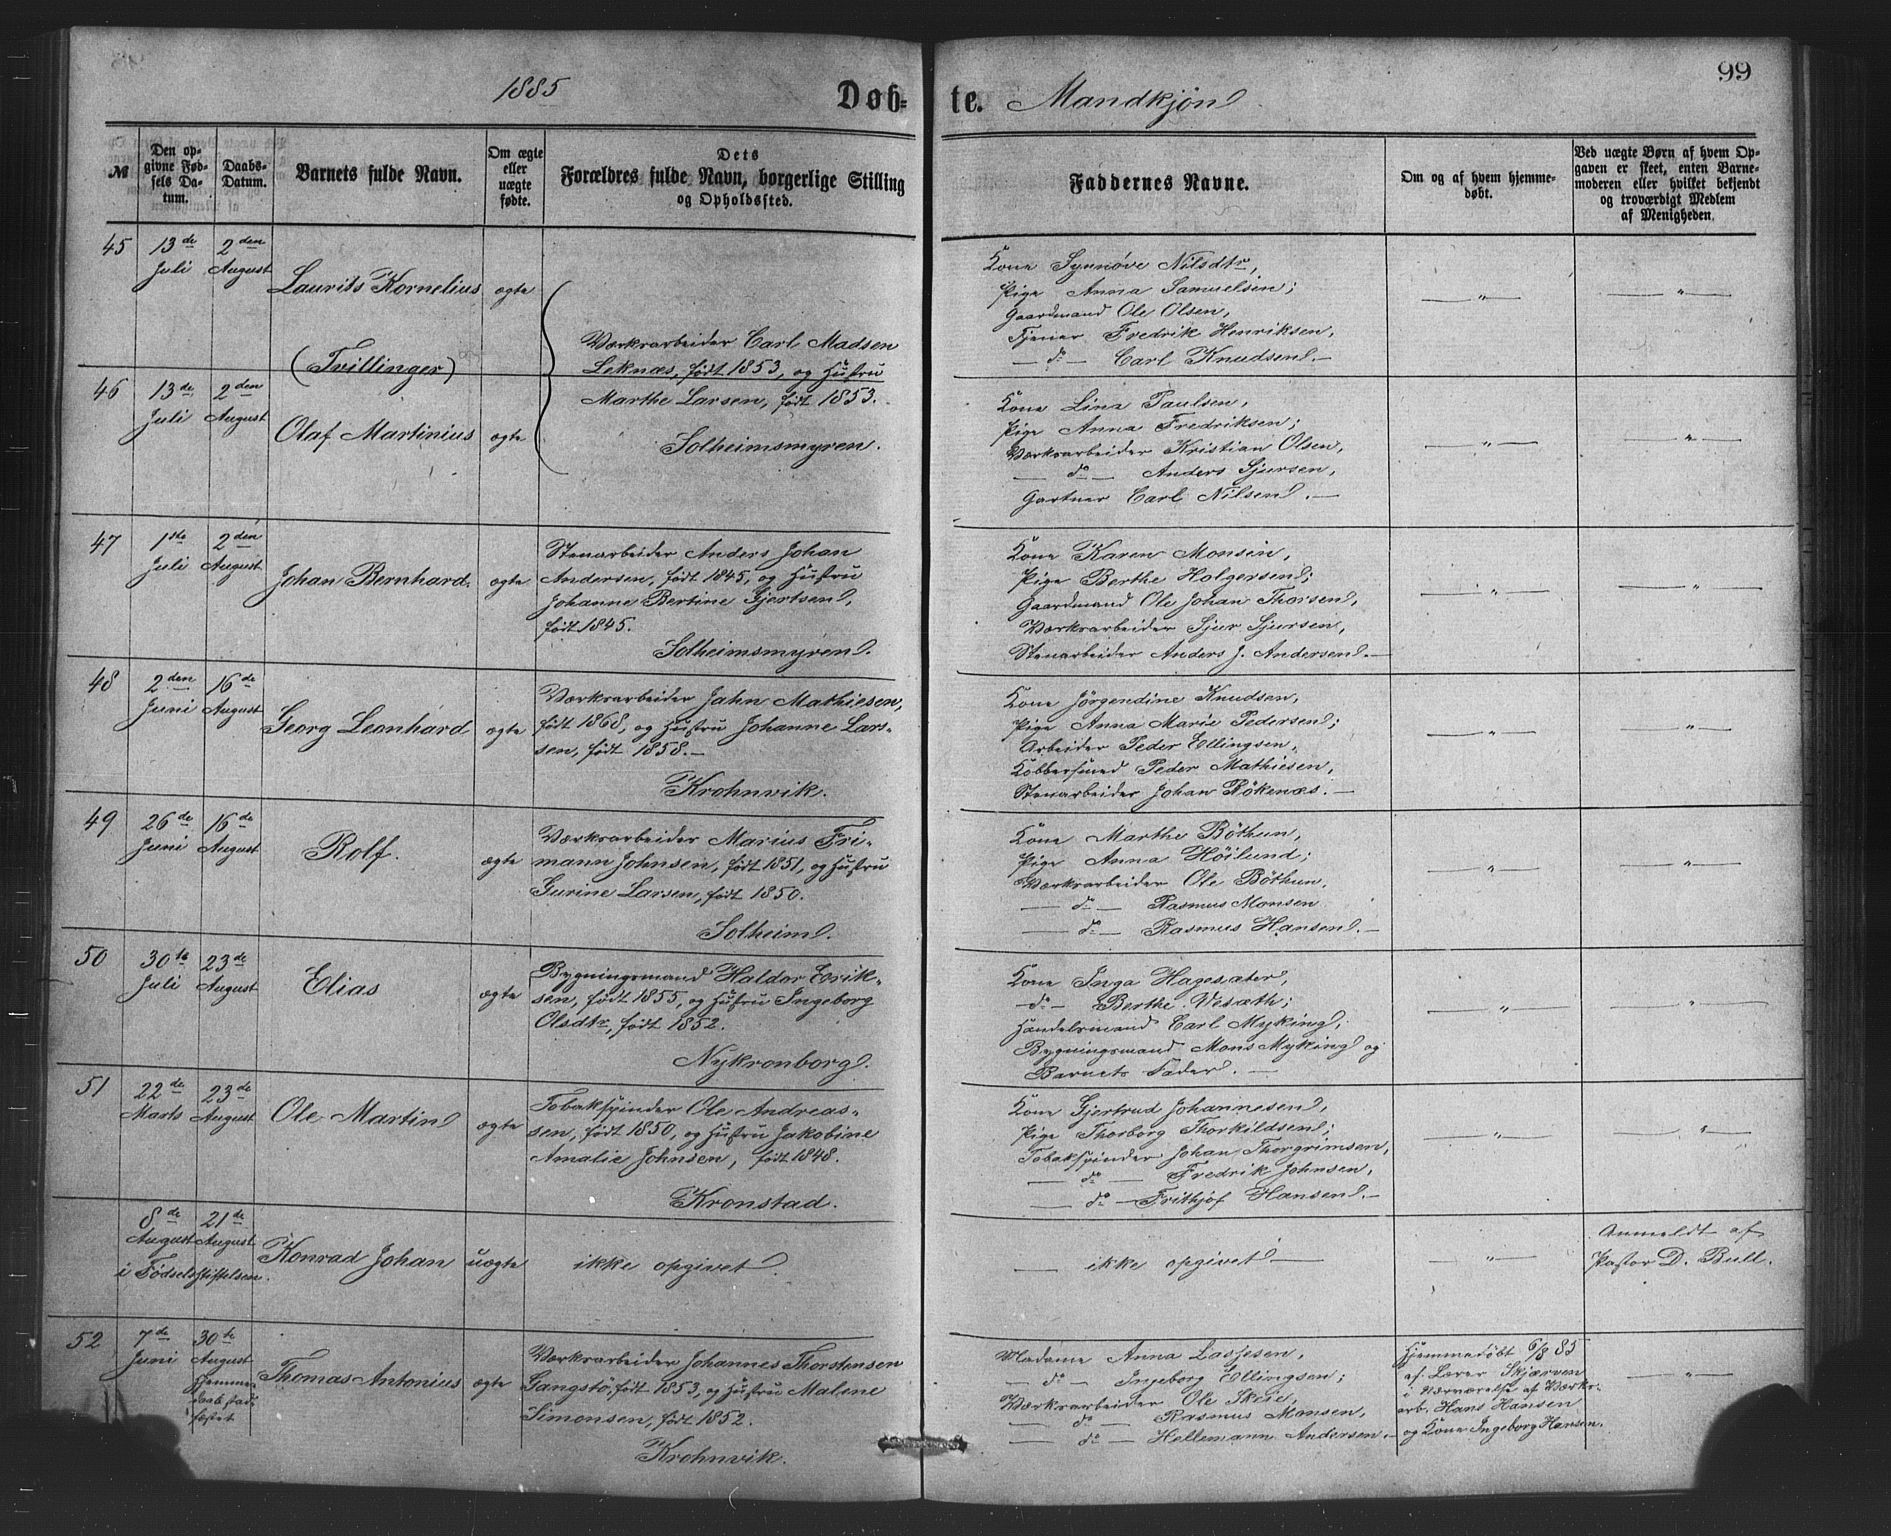 1885
Døb-
te.
Mandkjøn
99
№
Den op-
givne Fød-
sels Da-
tum.
Daabs-
Datum.
Barnets fulde Navn.
Om ægte
eller
uægte
fødte.
Dets
Forældres fulde Navn, borgerlige Stilling
og Opholdssted.
Faddernes Navne.
Om og af hvem hjemme-
døbt.
Ved uægte Børn af hvem Op-
gaven er skeet, enten Barne-
moderen eller hvilket bekjendt
og troværdigt Medlem
af Menigheden.
45
13de
Juli
2den
August
Laurits Kornelius
ægte
(Tvillinger)
Værksarbeider Carl Madsen
Leknæs, født 1853, og Hustru
Marthe Larsen, født 1853.
Solheimsmyren.
Kone Synnøve Nilsdtr,
Pige Anna Samuelsen;
Gaardmand Ole Olsen,
Tjener Fredrik Henriksen,
— do — Carl Knudsen. —
— " —
— " —
46
13de
Juli
2den
August
Olaf Martinius
ægte
Kone Lina Paulsen,
Pige Anna Fredriksen;
Værksarbeider Kristian Olsen,
— do — Anders Sjursen,
Gartner Carl Nilsen. —
— " —
— " —
47
1ste
Juli
2den
August
Johan Bernhard.
ægte
Stenarbeider Anders Johan
Andersen, født 1845, og Hustru
Johanne Bertine Gjertsen,
født 1845.
Solheimsmyren.
Kone Karen Monsen,
Pige Berthe Holgersen;
Gaardmand Ole Johan Thorsen,
Værksarbeider Sjur Sjursen,
Stenarbeider Anders J. Andersen. —
— " —
— " —
48
2den
Juni
16de
August
Georg Leonhard
ægte
Værksarbeider Jahn Mathiesen,
født 1868, og Hustru Johanne Lars-
sen, født 1858. —
Krohnvik.
Kone Jørgendine Knudsen,
Pige Anna Marie Pedersen;
Arbeider Peder Ellingsen,
Kobbersmed Peder Mathiesen,
Stenarbeider Johan Røkenæs. —
— " —
— " —
49
26de
Juni
16de
August
Rolf.
ægte
Værksarbeider Marius Fri-
mann Johnsen, født 1851, og Hustru
Gurine Larsen, født 1850.
Solheim.
Kone Marthe Bøthun,
Pige Anna Høilund;
Værksarbeider Ole Bøthun,
— do — Rasmus Monsen
— do — Rasmus Hansen. —
— " —
— " —
50
30te
Juli
23de
August
Elias
ægte
Bygningsmand Haldor Erik-
sen, født 1855, og Hustru Ingeborg
Olsdtr, født 1852.
Nykronborg.
Kone Inga Hagesæter,
— do — Berthe Vesæth;
Handelsmand Carl Myking,
Bygningsmand Mons Myking og
Barnets Fader. —
— " —
— " —
51
22de
Marts
23de
August
Ole Martin
ægte
Tobakspinder Ole Andreas-
sen, født 1850, og Hustru Jakobine
Amalie Johnsen, født 1848.
Kronstad.
Kone Gjertrud Johannesen,
Pige Thorborg Thorkildsen;
Tobakspinder Johan Thorgrimsen,
— do — Fredrik Johnsen,
— do — Frithjof Hansen. —
— " —
— " —
8de
August
21de
August
i Fødselsstiftelsen.
Konrad Johan
uægte
ikke opgivet.
— ikke opgivet —
— " —
Anmeldt af
Pastor D. Bull.
52
7de
Juni
30te
August
Hjemme-
daab stad-
fæstet
Thomas Antonius
ægte
Værksarbeider Johannes Thorstensen
Gangstø, født 1853, og Hustru Malene
Simonsen, født 1852.
Krohnvik.
Madame Anna Lassesen,
— do — Ingeborg Ellingsen;
Værksarbeider Ole Skeie,
— do — Rasmus Monsen,
— do — Hellemann Andersen. —
Hjemmedøbt 6/8 85
af Lærer Skjerven
i Nærværelse af Værks-
arb. Hans Hansen
og Kone Ingeborg Hansen.
— " —